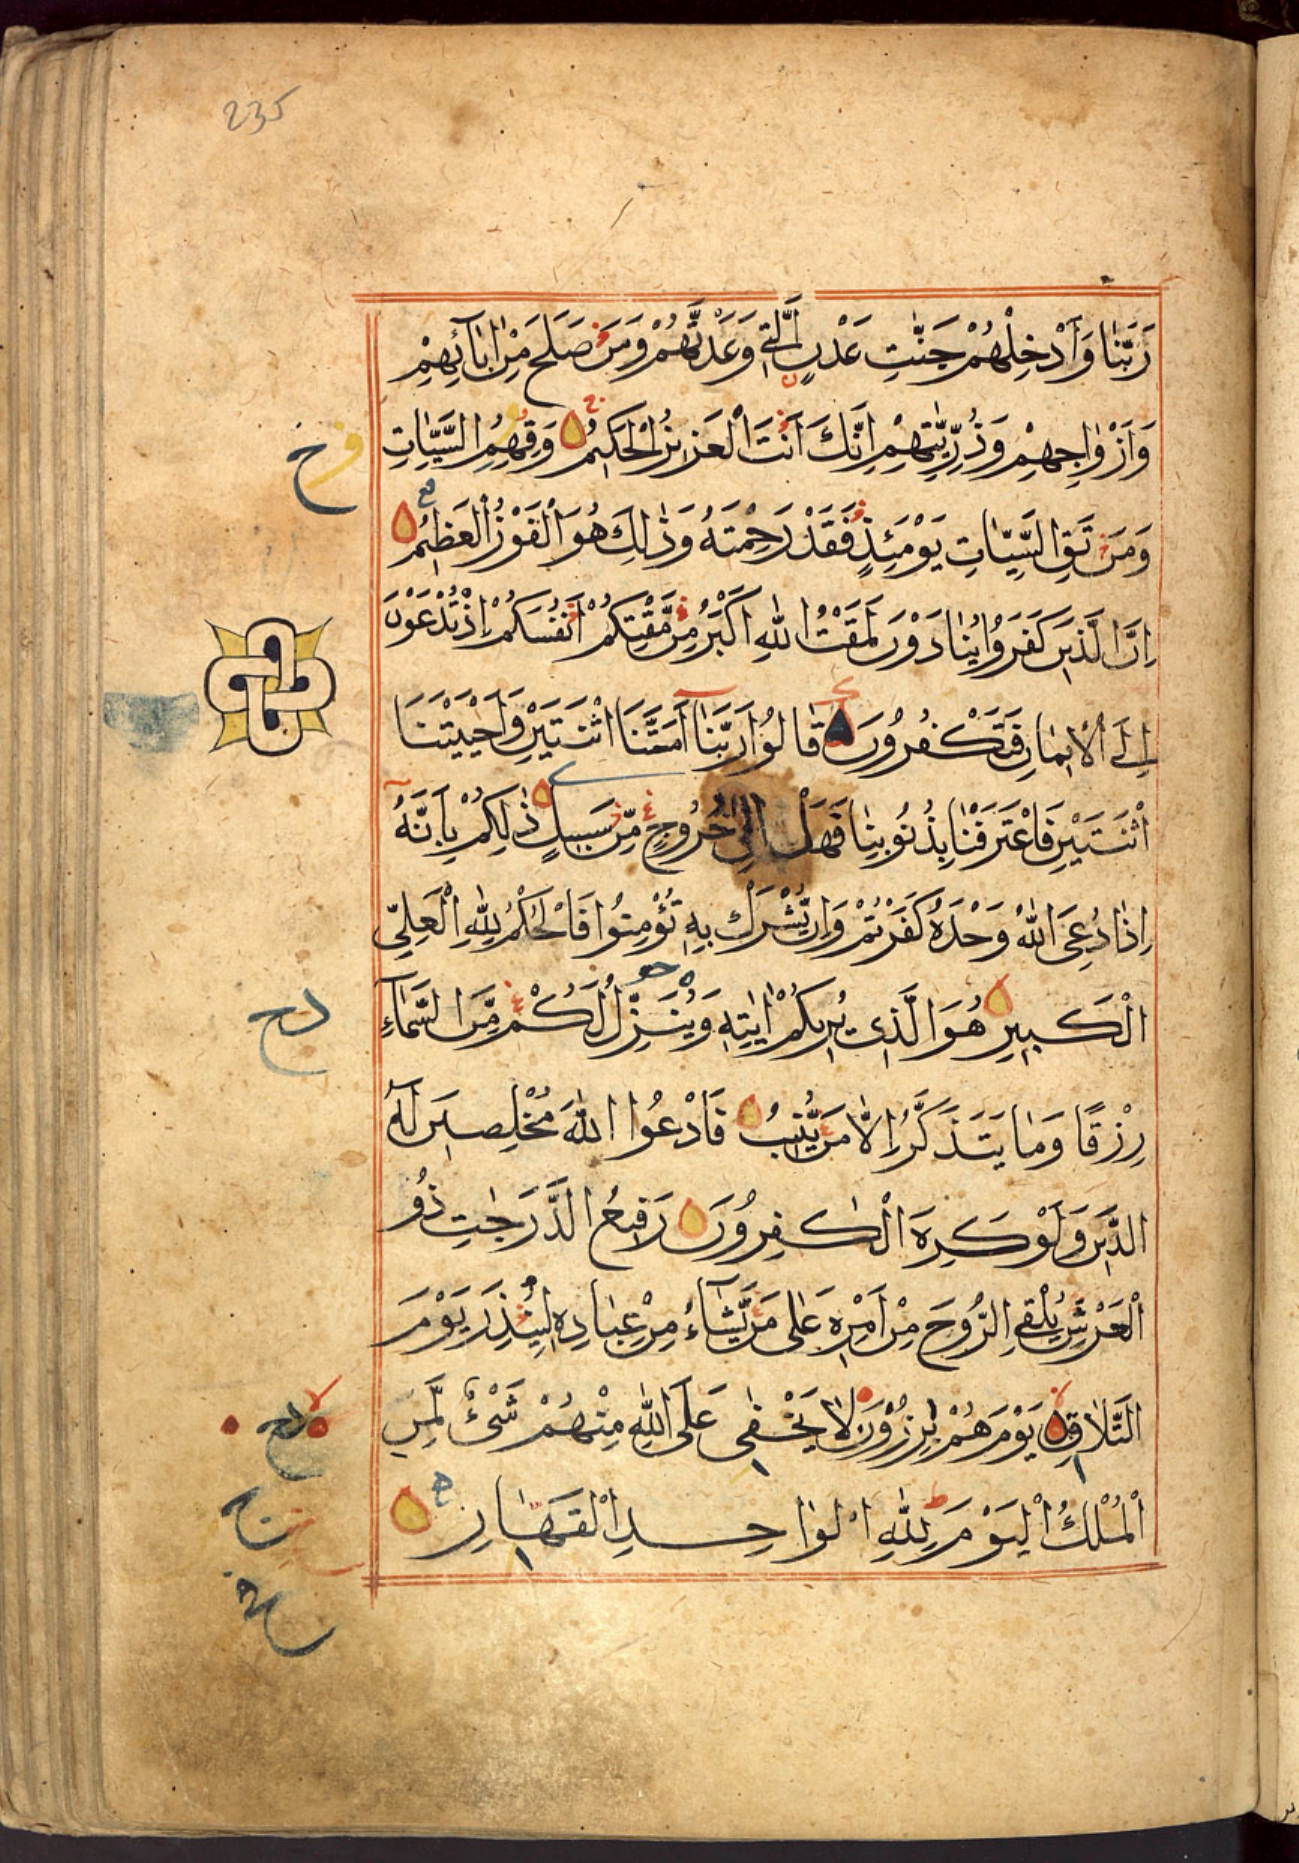 235
رَبَّنَا وَاَدْخِلْهُمْ جَنّٰتِ عَدْنٍ الَّتِي وَعَدْتَّهُمْ وَمَنْ صَلَحَ مِنْ اٰبَآئِهِمْ
وَاَزْوَاجِهِمْ وَذُرِّيّٰتِهِمْ اِنَّكَ اَنْتَ الْعَزِيْزُ الْحَكِيْمُ وَقِهِمُ السَّيِّاٰتِ
وَمَنْ تَقِ السَّيِّاٰتِ يَوْمَئِذٍ فَقَدْ رَحِمْتَهُ وَذٰلِكَ هُوَ الْفَوْزُ الْعَظِيْمُ
اِنَّ الَّذِيْنَ كَفَرُوْا يُنَادَوْنَ لَمَقْتُ اللّٰهِ اَكْبَرُ مِنْ مَّقْتِكُمْ اَنْفُسَكُمْ اِذْ تُدْعَوْنَ
اِلَى الْاِيْمَانِ فَتَكْفُرُوْنَ قَالُوْا رَبَّنَا اَمَتَّنَا اثْنَتَيْنِ وَاَحْيَيْتَنَا
اثْنَتَيْنِ فَاعْتَرَفْنَا بِذُنُوْبِنَا فَهَلْ اِلٰى خُرُوْجٍ مِّنْ سَبِيْلٍ ذٰلِكُمْ بِاَنَّهُ
اِذَا دُعِيَ اللّٰهُ وَحْدَهُ كَفَرْتُمْ وَاِنْ يُّشْرَكْ بِهٖ تُؤْمِنُوْا فَالْحُكْمُ لِلّٰهِ الْعَلِيِّ
الْكَبِيْرِ هُوَ الَّذِيْ يُرِيْكُمْ اٰيٰتِهٖ وَيُنَزِّلُ لَكُمْ مِّنَ السَّمَآءِ
رِزْقًا وَمَا يَتَذَكَّرُ اِلَّا مَنْ يُّنِيْبُ فَادْعُوا اللّٰهَ مُخْلِصِيْنَ لَهُ
الدِّيْنَ وَلَوْ كَرِهَ الْكٰفِرُوْنَ رَفِيْعُ الدَّرَجٰتِ ذُو
الْعَرْشِ يُلْقِي الرُّوْحَ مِنْ اَمْرِهٖ عَلٰى مَنْ يَّشَآءُ مِنْ عِبَادِهٖ لِيُنْذِرَ يَوْمَ
التَّلَاقِ يَوْمَ هُمْ بٰرِزُوْنَ لَا يَخْفٰى عَلَى اللّٰهِ مِنْهُمْ شَيْءٌ لِّمَنِ
الْمُلْكُ الْيَوْمَ لِلّٰهِ الْوَاحِدِ الْقَهَّارِ